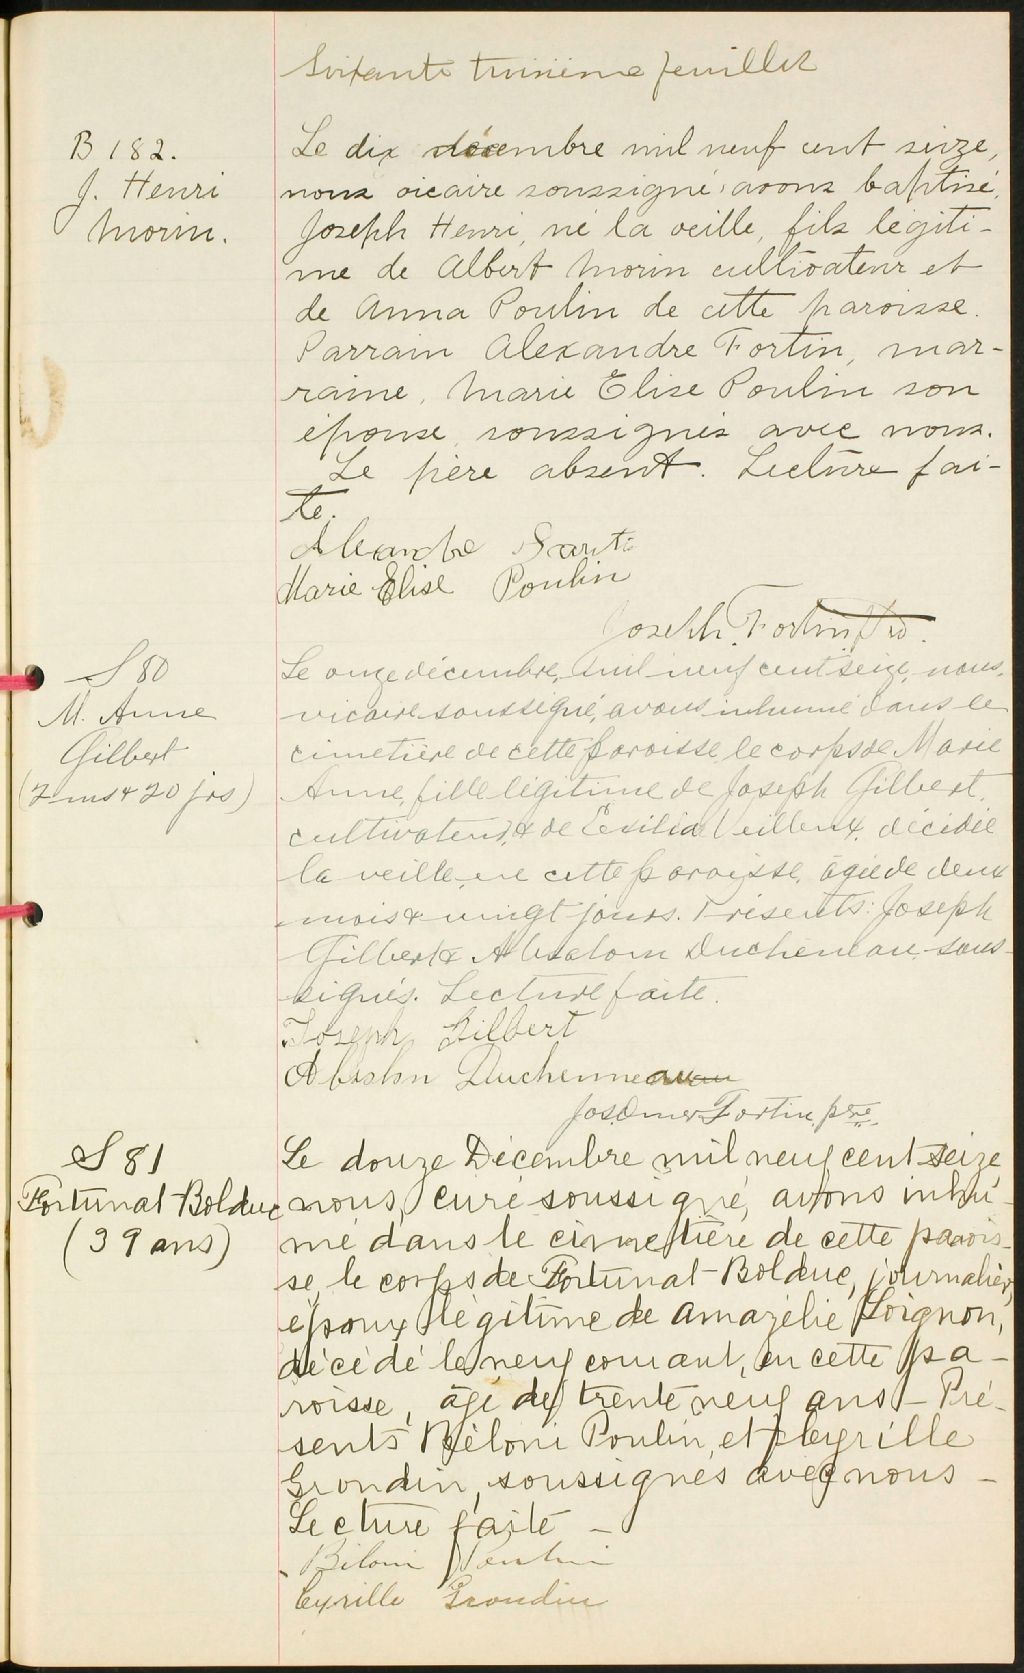 Soixante treizième feuillet
B 182.
J. Henri
Morin.
Le dix décembre mil neuf cent seize,
nous vicaire soussigné, avons baptisé,
Joseph Henri, né la veille, fils légiti-
me de Albert Morin cultivateur et
de Anna Poulin de cette paroisse.
Parrain Alexandre Fortin, mar-
raine, Marie Elise Poulin son
épouse, soussignés avec nous.
Le père absent. Lecture fai-
te.
Marie Elise Poulin
Joseph Fortin Ptre.
S 80
M. Anne
Gilbert
(2 ms & 20 jrs)
Le onze décembre, mil neuf cent seize, nous,
vicaire soussigné, avons inhumé dans le
cimetière de cette paroisse, le corps de Marie
Anne, fille légitime de Joseph Gilbert,
cultivateur, & de Veilleux, décédée
la veille, en cette paroisse, âgée de deux
mois & vingt jours. Présents: Joseph
Gilbert & Absalom Ducheneau, sous-
signés. Lecture faite.
Joseph Gilbert
Abslon Duchenneau
Jos. Omer Fortin, ptre.
S 81
Fortunat Bolduc
(39 ans)
Le douze Décembre mil neuf cent seize
nous, curé soussigné, avons inhu-
mé dans le cimetière de cette parois-
se, le corps de Fortunat Bolduc, journalier,
époux légitime de Amazélie Loignon,
décédé le neuf courant, en cette pa-
roisse, âgé de trente neuf ans - Pré-
sents Béloni Poulin, et Cyrille
Grondin, soussignés avec nous -
Lecture faite -
Biloni Poulin
Cyrille Grondin